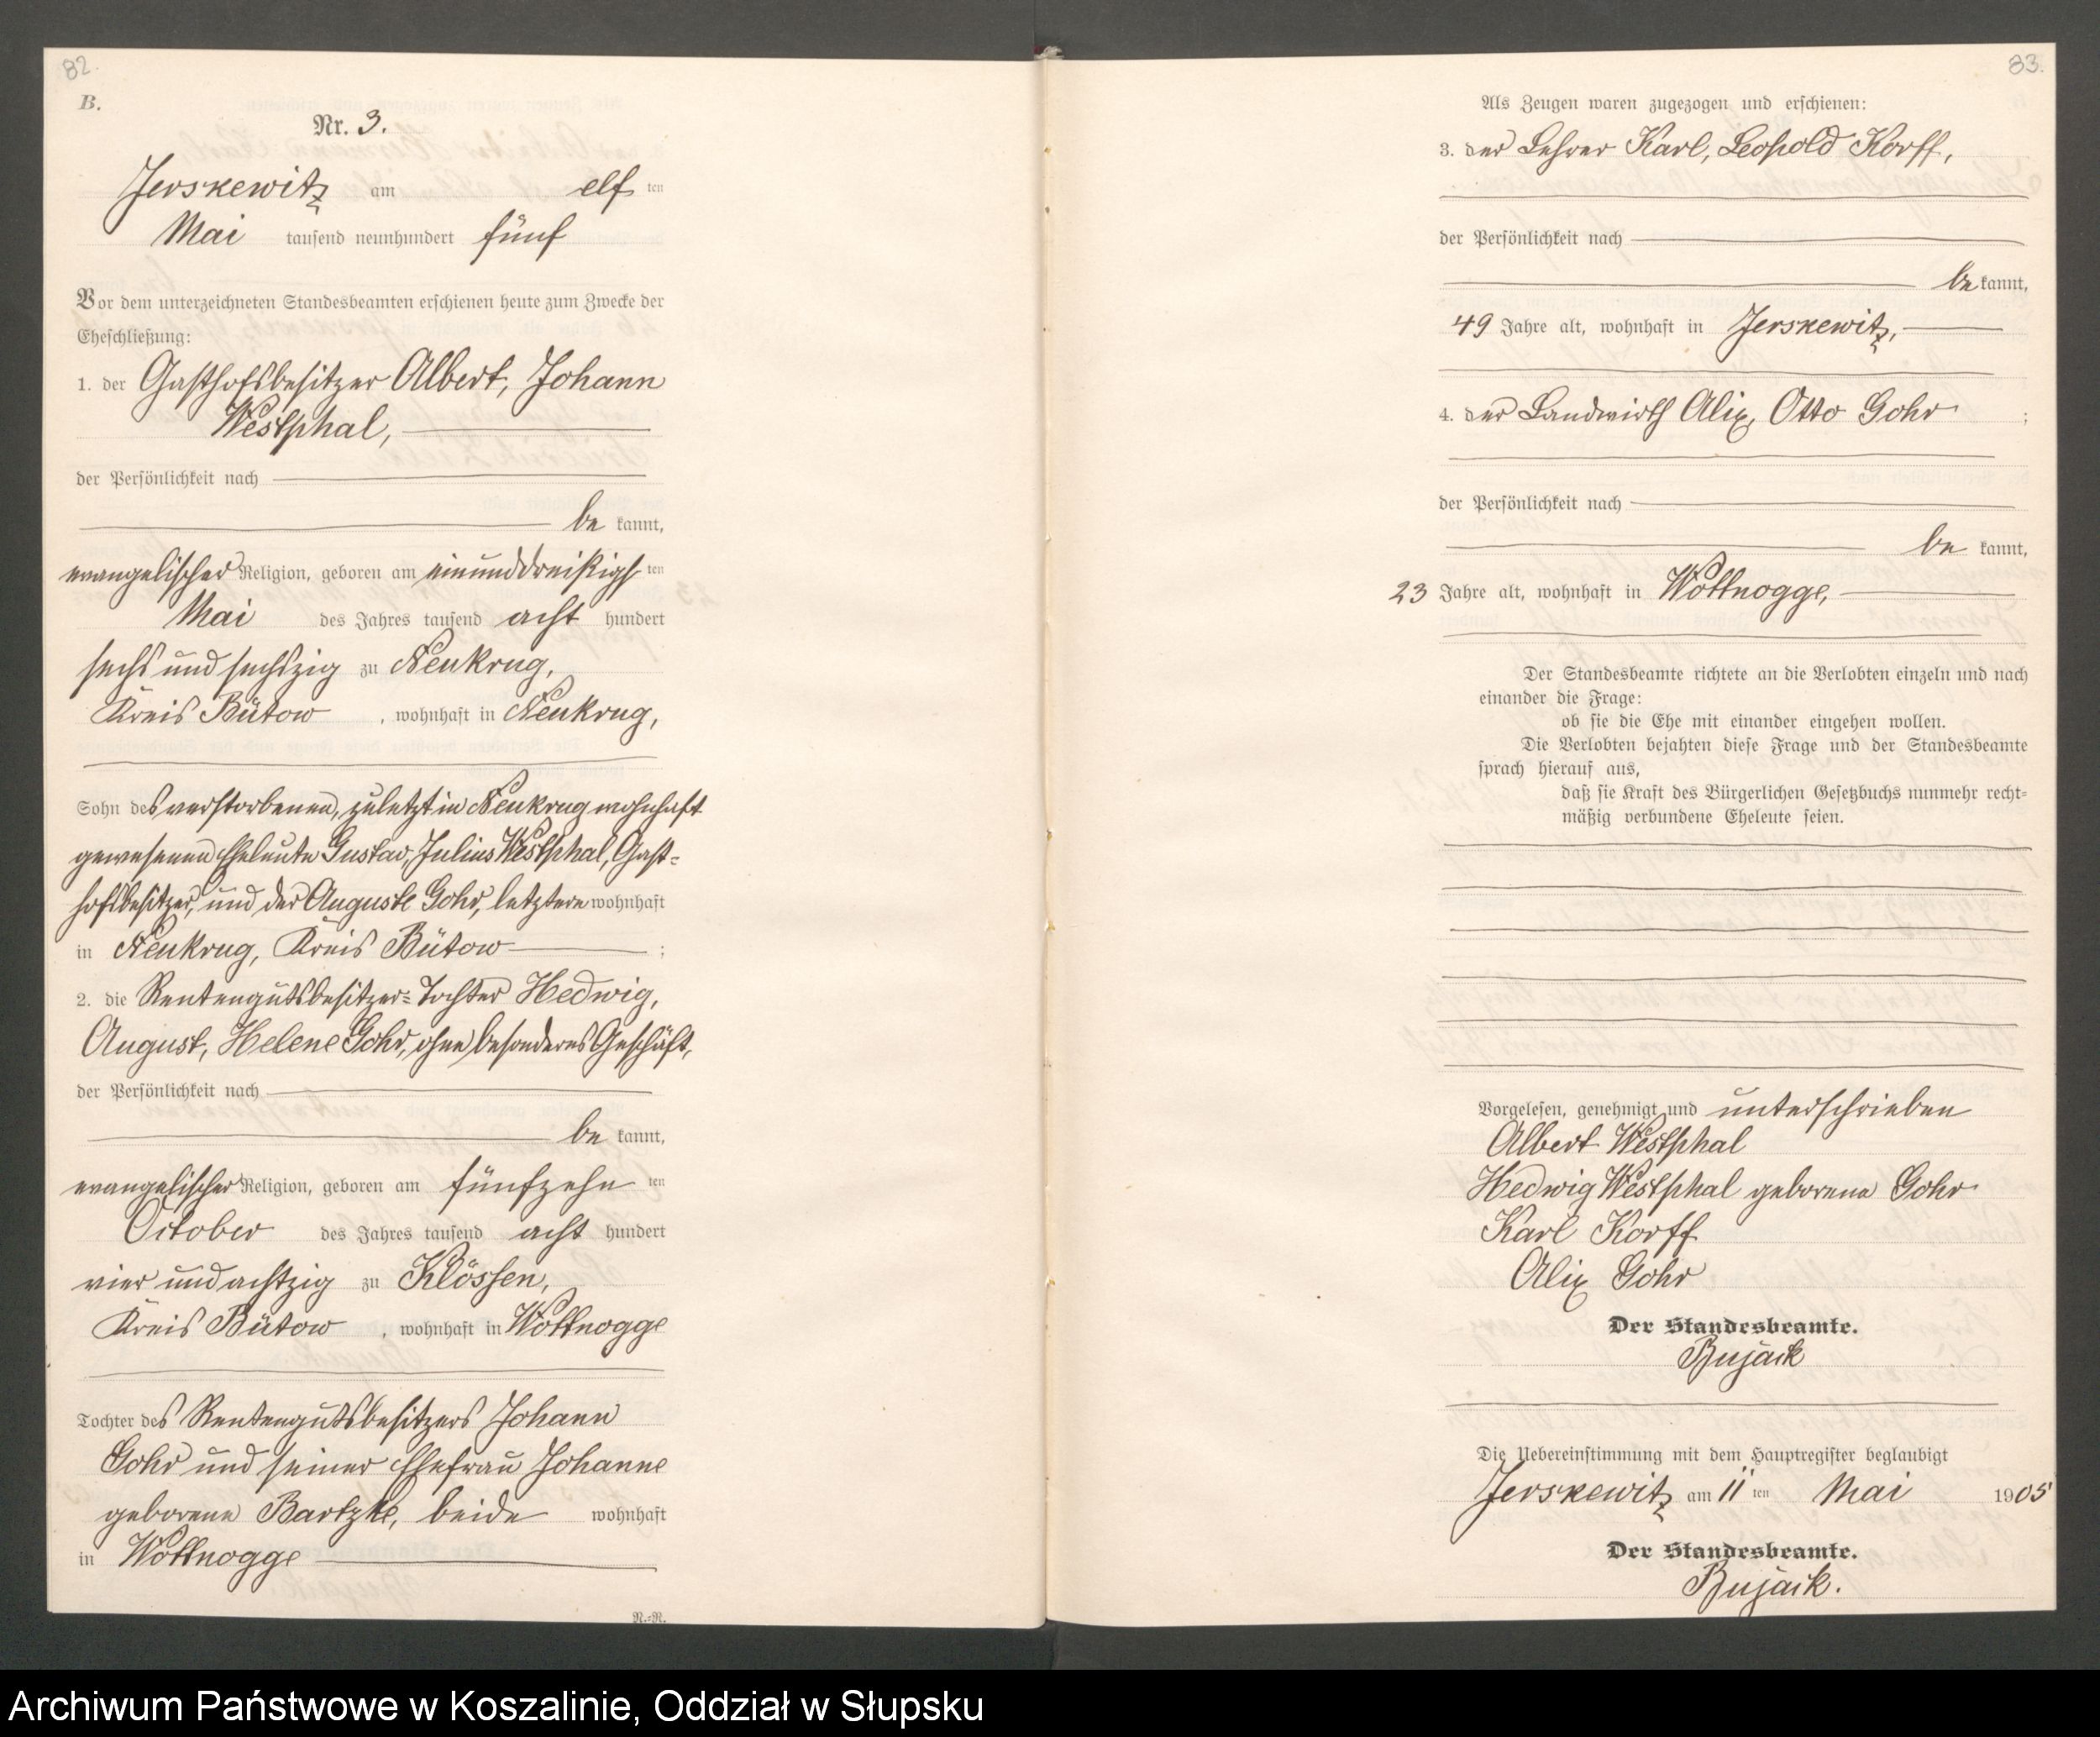 82.
B.
Nr. 3.
Jerskewitz am elf ten
Mai tausend neunhundert fünf
Vor dem unterzeichneten Standesbeamten erschienen heute zum Zwecke der
Eheschließung:
1. der Gasthofsbesitzer Albert, Johann
Westphal,
der Persönlichkeit nach
be kannt,
evangelischer Religion, geboren am einunddreißigs ten
Mai des Jahres tausend acht hundert
sechs und sechszig zu Neukrug,
Kreis Bütow , wohnhaft in Neukrug,
Sohn des verstorbenen, zuletzt in Neukrug wohnhaft
gewesenen Eheleute Gustav, Julius Westphal, Gast-
hofsbesitzer, und der Auguste Gohr, letztere wohnhaft
in Neukrug, Kreis Bütow ;
2. die Rentengutsbesitzer-Tochter Hedwig,
August, Helene Gohr, ohne besonderes Geschäft,
der Persönlichkeit nach
be kannt,
evangelischer Religion, geboren am fünfzehn ten
October des Jahres tausend acht hundert
vier und achtzig zu Klössen,
Kreis Bütow , wohnhaft in Wottnogge
Tochter des Rentengutsbesitzers Johann
Gohr und seiner Ehefrau Johanne
geborene Bartzke, beide wohnhaft
in Wottnogge
N.-R.
83.
Als Zeugen waren zugezogen und erschienen:
3. der Lehrer Karl, Leopold Korff,
der Persönlichkeit nach
be kannt,
49 Jahre alt, wohnhaft in Jerskewitz,
4. der Landwirth Alix, Otto Gohr ;
der Persönlichkeit nach
be kannt,
23 Jahre alt, wohnhaft in Wottnogge,
Der Standesbeamte richtete an die Verlobten einzeln und nach
einander die Frage:
ob sie die Ehe mit einander eingehen wollen.
Die Verlobten bejahten diese Frage und der Standesbeamte
sprach hierauf aus,
daß sie Kraft des Bürgerlichen Gesetzbuchs nunmehr recht-
mäßig verbundene Eheleute seien.
Vorgelesen, genehmigt und unterschrieben
Albert Westphal
Hedwig Westphal geborene Gohr
Karl Korff
Alix Gohr
Der Standesbeamte.
Bujack
Die Uebereinstimmung mit dem Hauptregister beglaubigt
Jerskewitz am 11 ten Mai 1905
Der Standesbeamte.
Bujack.
Archiwum Państwowe w Koszalinie, Oddział w Słupsku